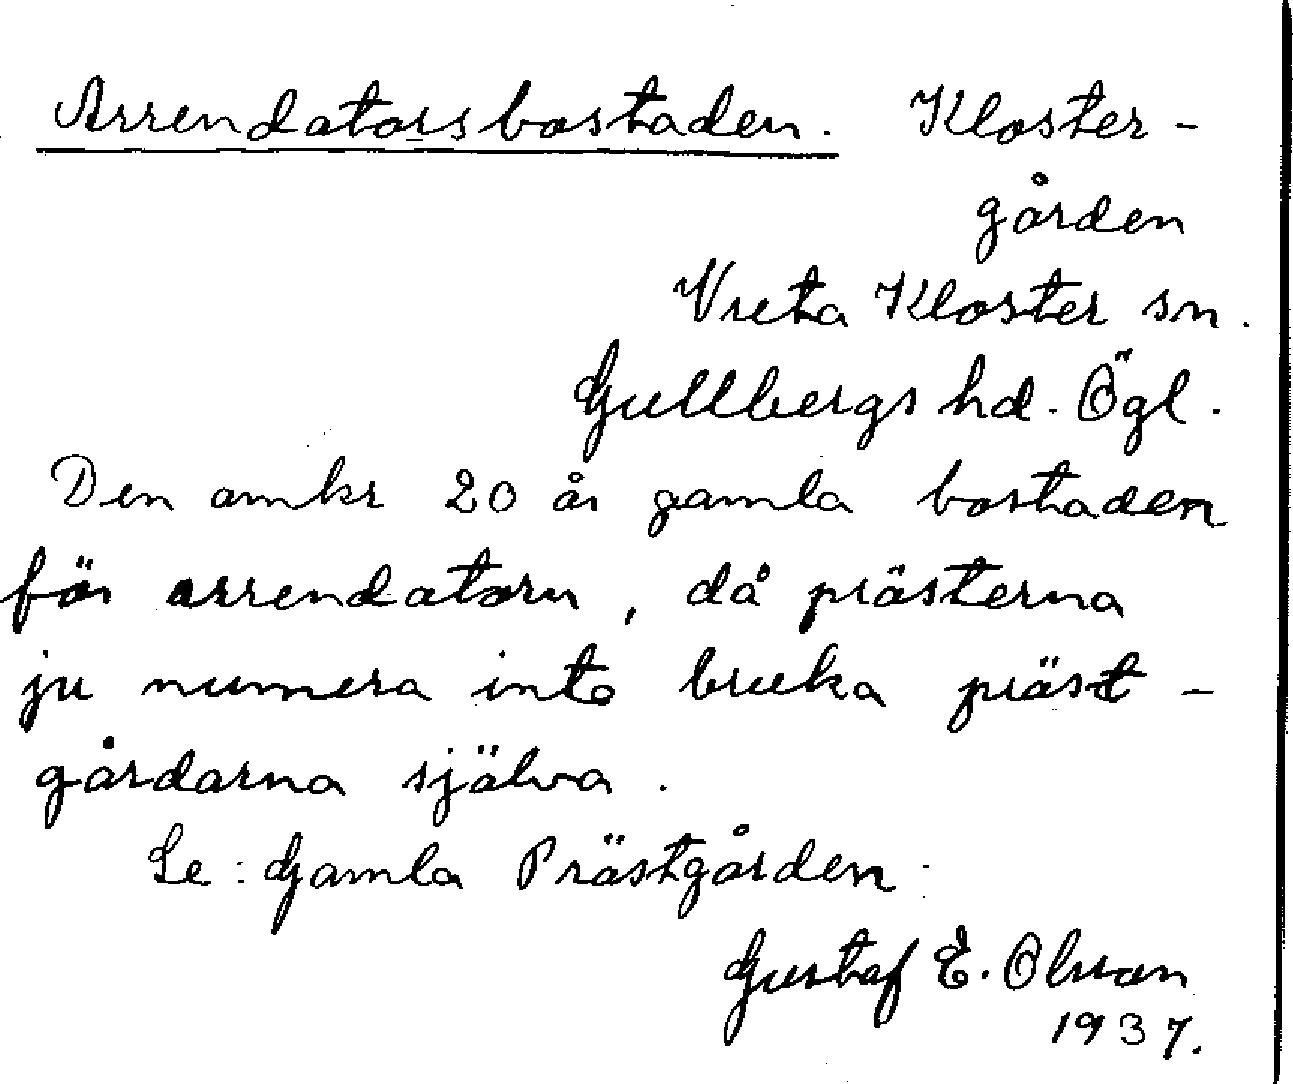 Arrendatorsbostaden. Kloster-
gården
Vreta Kloster sn.
Gullbergs hd. Ögl.
Den omkr 20 år gamla bostaden
för arrendatorn, då prästerna
ju numera inte bruka präst-
gårdarna själva.
Se: Gamla Prästgården.
Gustaf E. Olsson
1937.